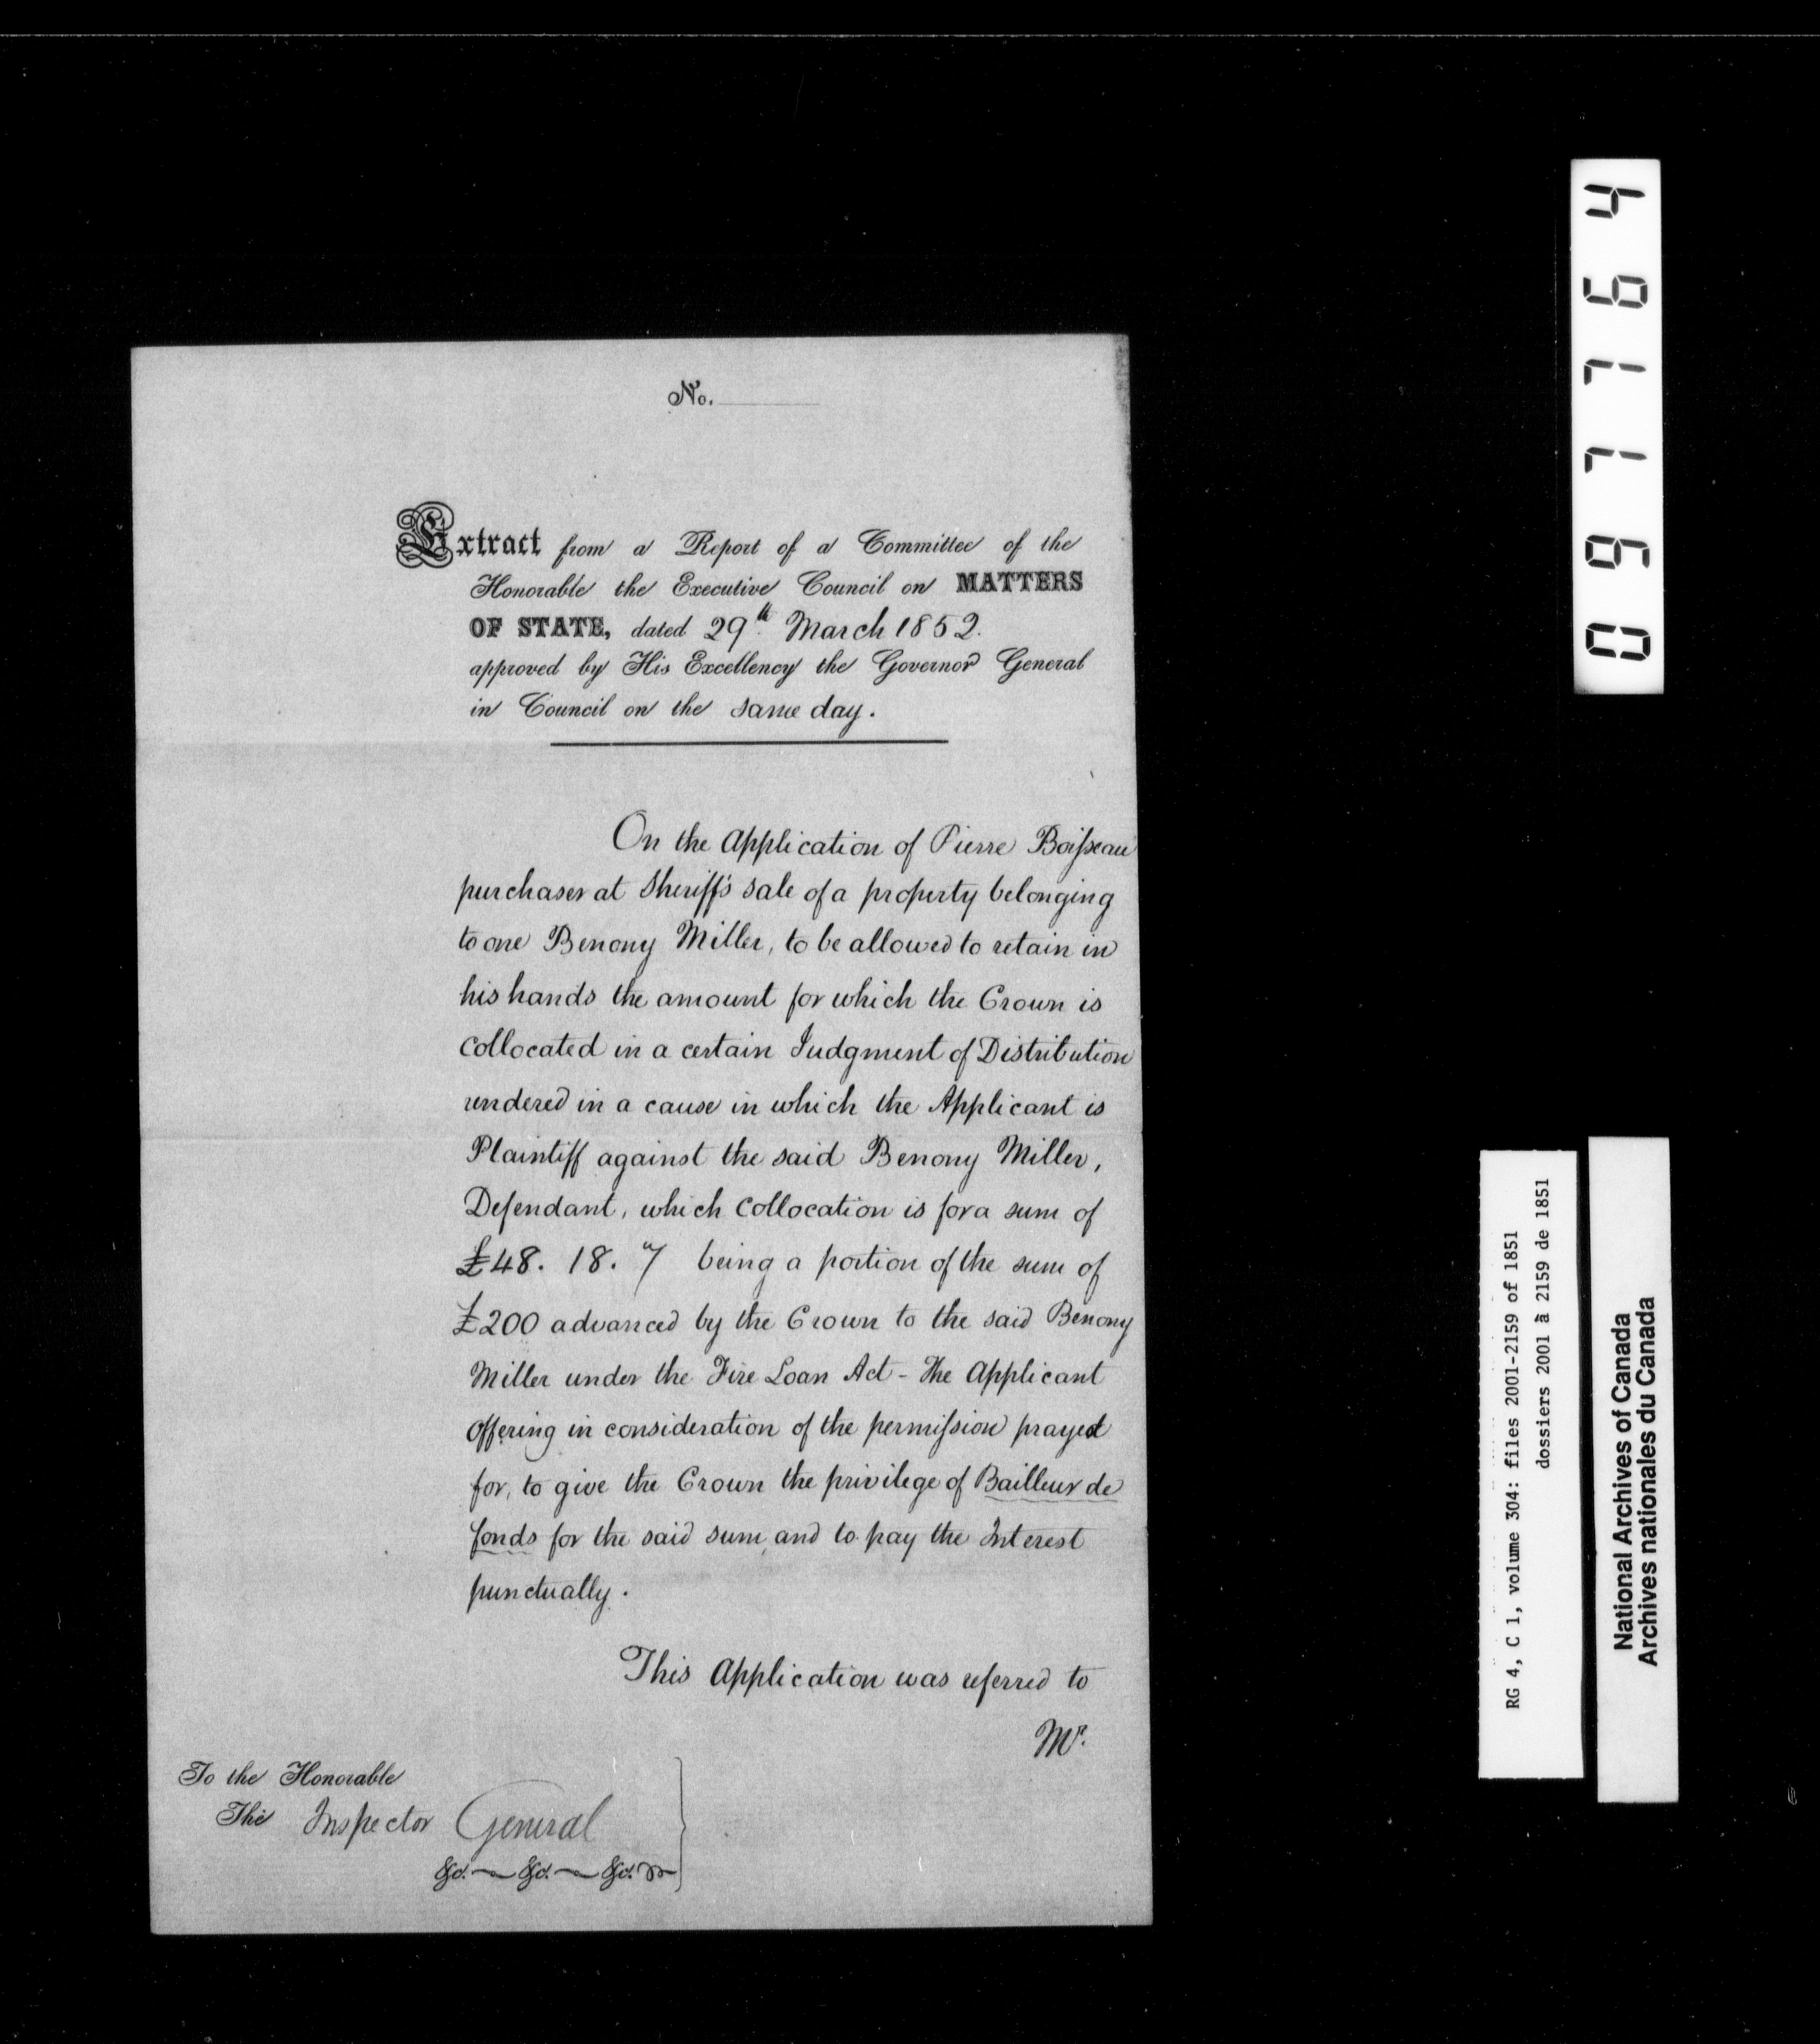 No.
Extract from a Report of a Committee of the
Honorable the Executive Council on MATTERS
OF STATE, dated 29th March 1852.
approved by His Excellency the Governor General
in Council on the same day.
On the Application of Pierre Boisseau
purchaser at Sheriff's sale of a property belonging
to one Benony Miller, to be allowed to retain in
his hands the amount for which the Crown is
Collocated in a certain Judgment of Distribution
rendered in a cause in which the Applicant is
Plaintiff against the said Benony Miller,
Defendant, which Collocation is for a sum of
£48. 18. 7 being a portion of the sum of
£200 advanced by the Crown to the said Benony
Miller under the Fire Loan Act - The Applicant
Offering in consideration of the permission prayed
for, to give the Crown the privilege of Bailleur de
fonds for the said sum, and to pay the Interest
punctually.
This Application was referred to
Mr.
To the Honorable
The Inspector General
&c. &c. &c.
097764
RG 4, C 1, volume 304: files 2001-2159 of 1851
dossiers 2001 à 2159 de 1851
National Archives of Canada
Archives nationales du Canada